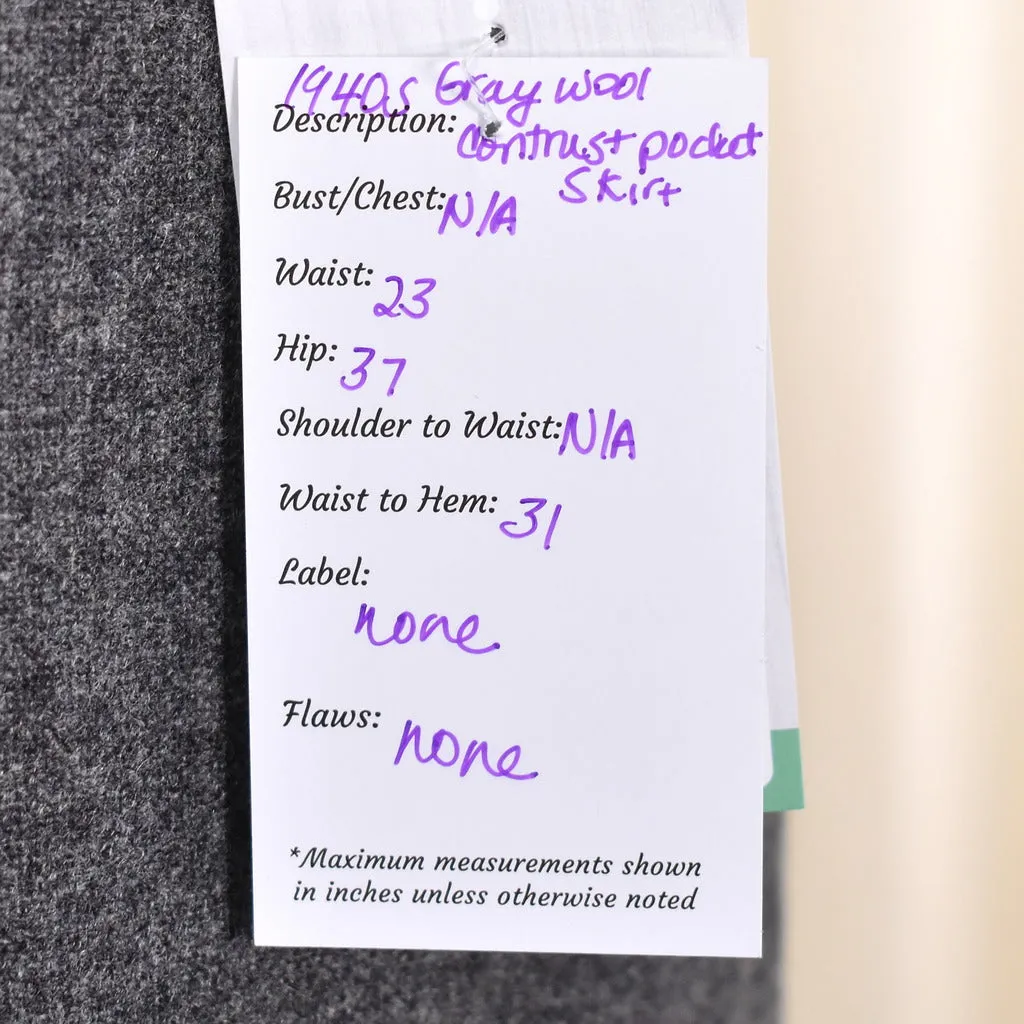 1940s Gray wool
Description: contrast pocket
skirt
Bust/Chest: N/A
Waist: 23
Hip: 37
Shoulder to Waist: N/A
Waist to Hem: 31
Label:
none
Flaws: none
*Maximum measurements shown
in inches unless otherwise noted